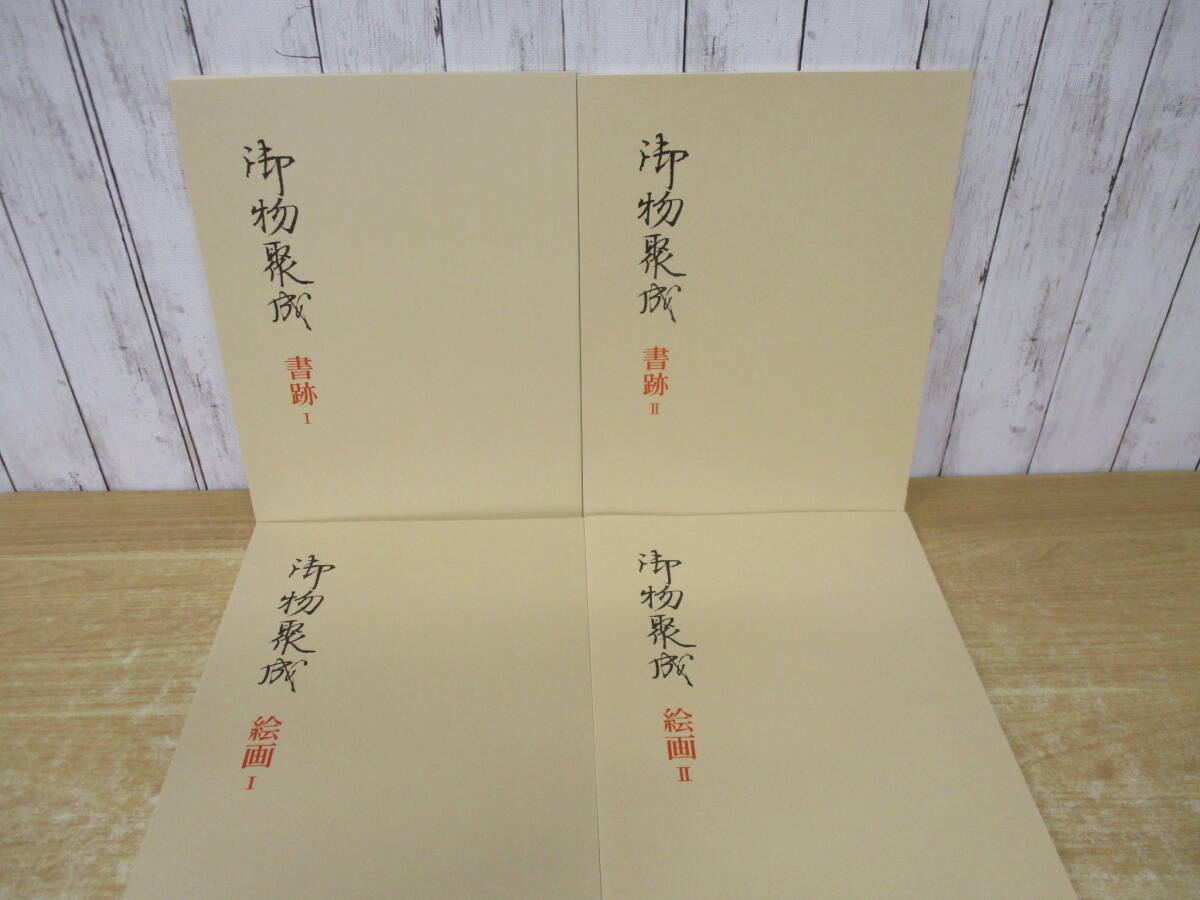 御物聚成
書跡 I
御物聚成
書跡 II
御物聚成
絵画 I
御物聚成
絵画 II